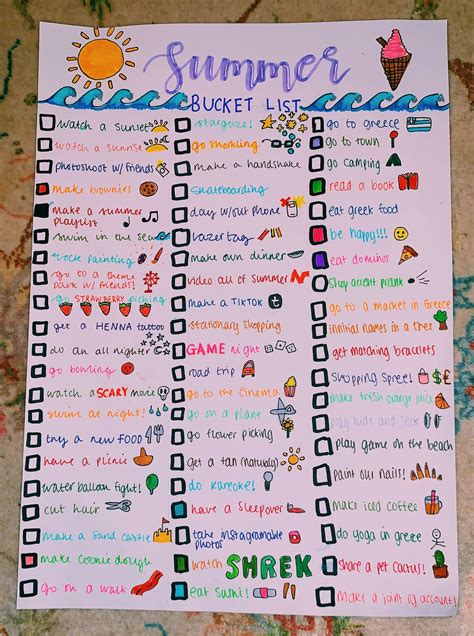 Summer
BUCKET LIST
watch a sunset
watch a sunrise
photoshoot w/ friends
make brownies
make a summer
playlist
swim in the sea
rock painting
go to a theme
park w/ friends!
go STRAWBERRY picking
get a HENNA tattoo
do an all nighter
go bowling
watch a SCARY movie
swim at night!
try a new FOOD
have a picnic
water balloon fight!
cut hair
make a sand castle
make cookie dough
go on a walk
stargaze!
go snorkling
make a handshake
skateboarding
day w/out phone
lazer tag
make own dinner
video all of summer
make a TIKTOK
stationary shopping
GAME night
road trip
go to the cinema
go on a plane
go flower picking
get a tan (naturally)
do kareoke!
have a sleepover
take instagramable
photos
watch SHREK
eat sushi!
go to greece
go to town
go camping
read a book
eat greek food
be happy!!!
eat dominos
Shop accent prank
go to a market in Greece
innitial names in a tree
get matching bracelets
Shopping Spree! $£
make fresh orange juice
play hide and seek
play game on the beach
paint our nails!
make iced coffee
do yoga in greece
share a pet cactus!
make a joint ig account!